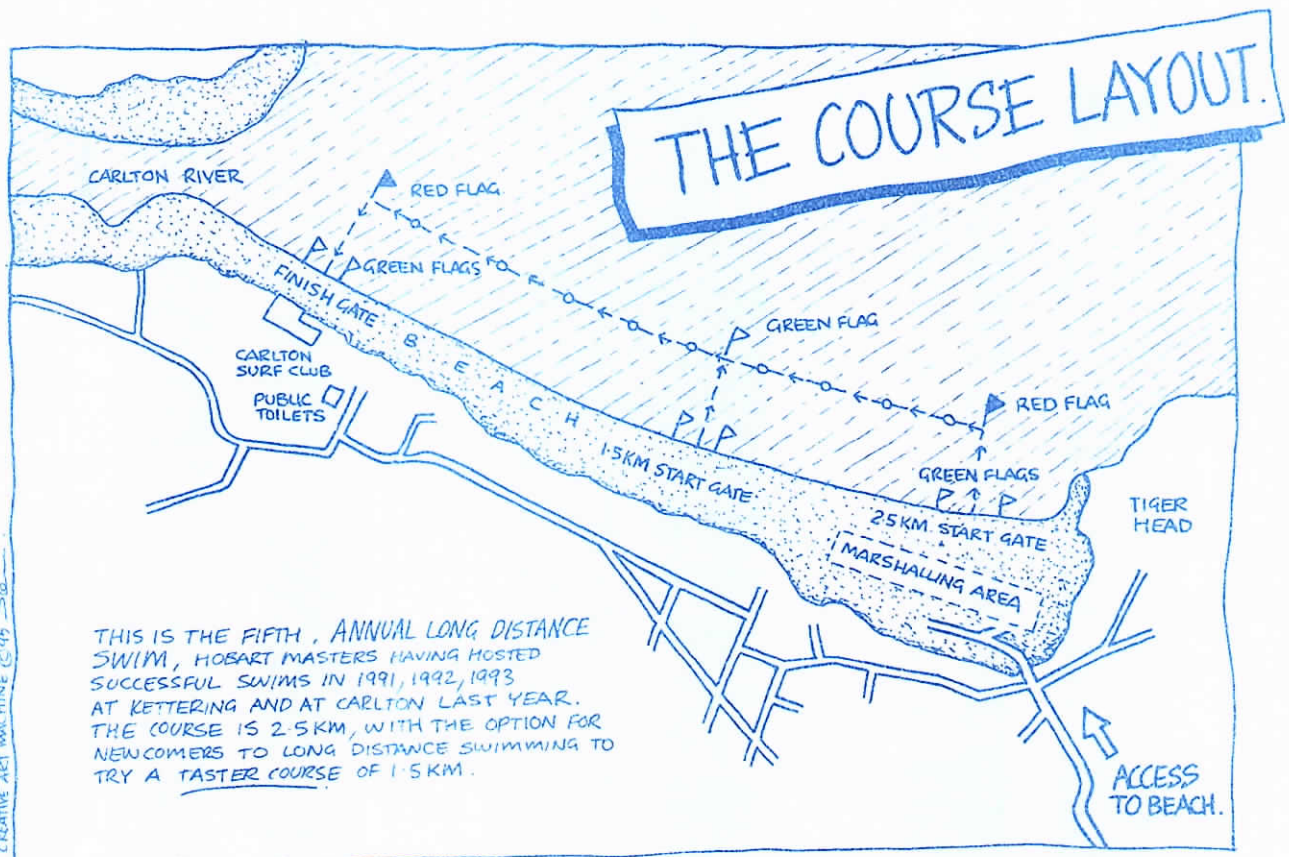 THE COURSE LAYOUT.
CARLTON RIVER
RED FLAG
GREEN FLAGS
FINISH GATE
BEACH
CARLTON
SURF CLUB
PUBLIC
TOILETS
GREEN FLAG
1.5KM START GATE
RED FLAG
GREEN FLAGS
25KM START GATE
MARSHALLING AREA
TIGER
HEAD
THIS IS THE FIFTH, ANNUAL LONG DISTANCE
SWIM, HOBART MASTERS HAVING HOSTED
SUCCESSFUL SWIMS IN 1991, 1992, 1993
AT KETTERING AND AT CARLTON LAST YEAR.
THE COURSE IS 2.5KM, WITH THE OPTION FOR
NEWCOMERS TO LONG DISTANCE SWIMMING TO
TRY A TASTER COURSE OF 1.5KM.
ACCESS
TO BEACH.
CREATIVE ART MACHINE © 95